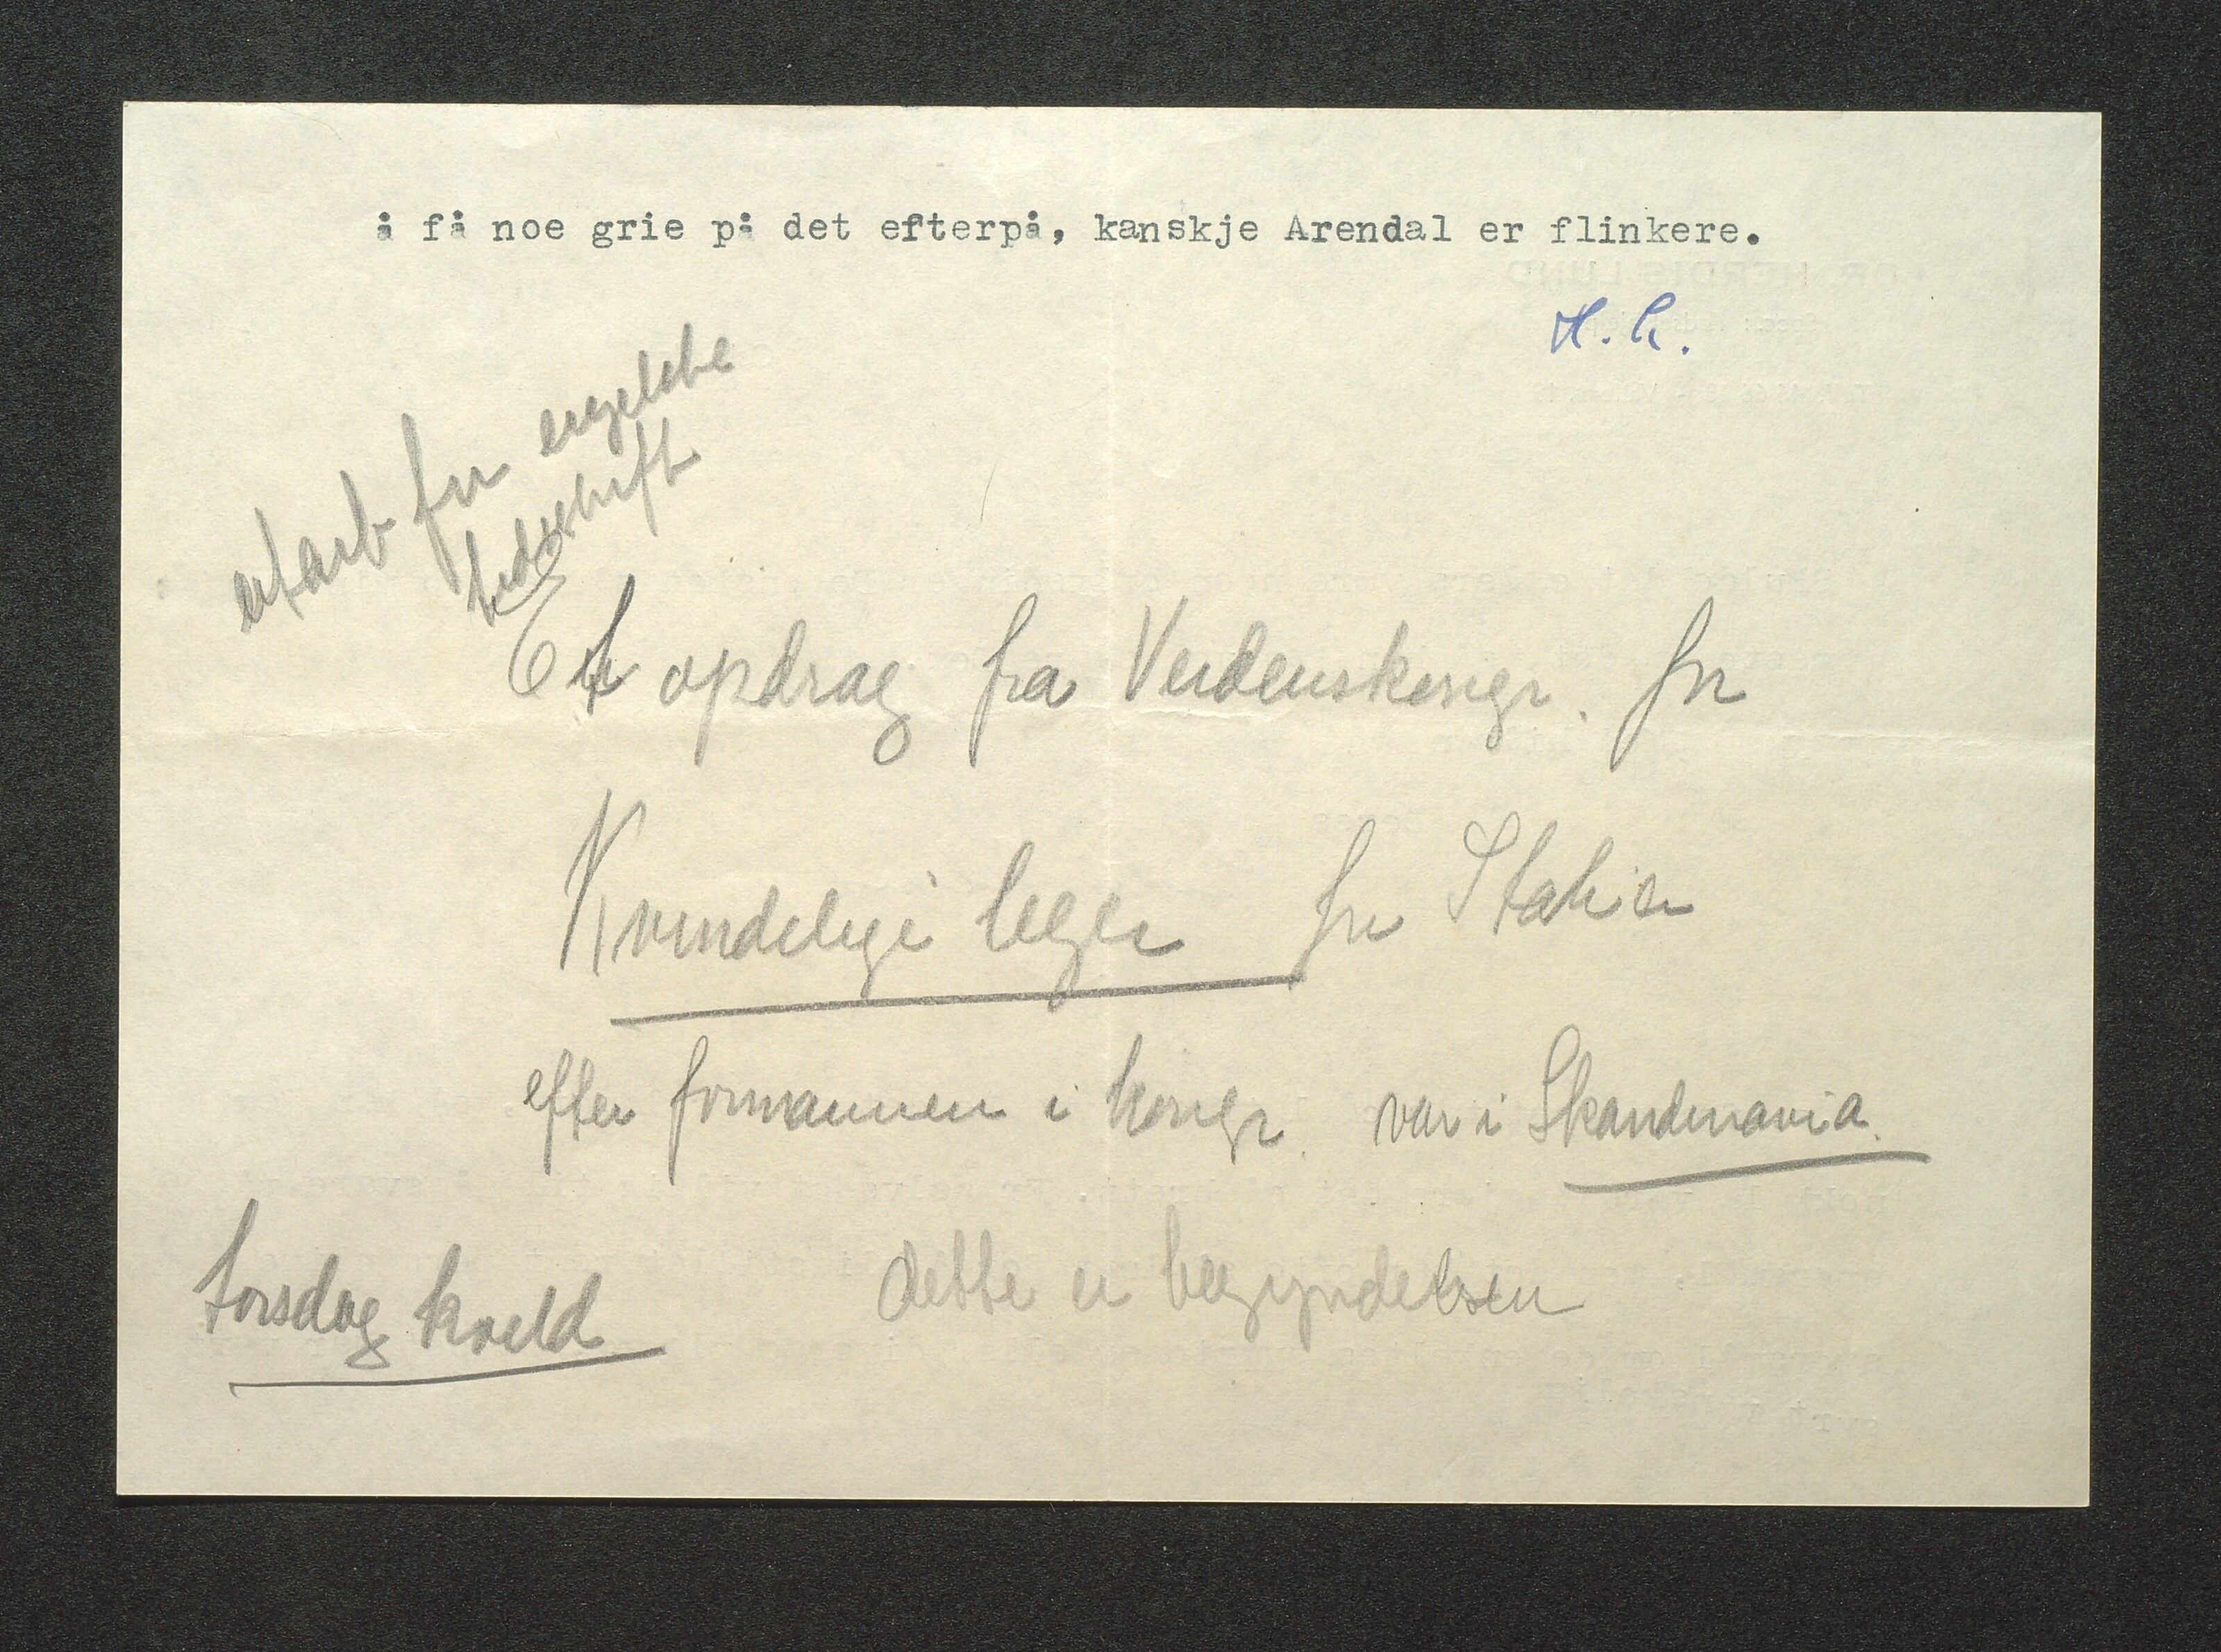 å få noe grie på det efterpå, kanskje Arendal er flinkere.
H. L.
for engelske
tidsskrift
Et opdrag fra Verdenskongr. for
Kvindelige leger fra Italien
efter formannen i kongr. var i Skandinavia.
dette er begyndelsen
torsdag kveld